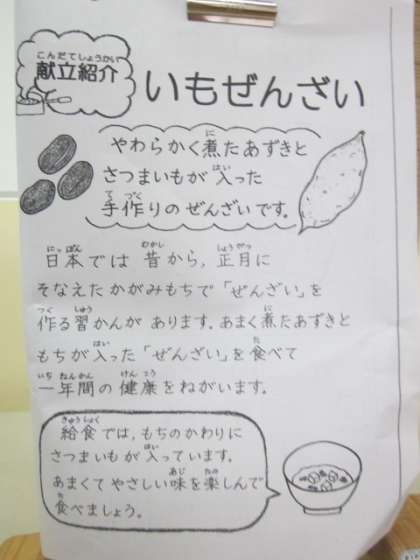 こんだてしょうかい
献立紹介
いもぜんざい
やわらかく煮たあずきと
さつまいもが入った
手作りのぜんざいです。
日本では昔から、正月に
そなえたかがみもちで「ぜんざい」を
作る習かんがあります。あまく煮たあずきと
もちが入った「ぜんざい」を食べて
一年間の健康をねがいます。
給食では、もちのかわりに
さつまいもが入っています。
あまくてやさしい味を楽しんで
食べましょう。